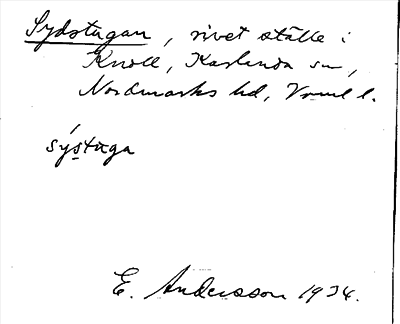 Sydstugan, rivet ställe i
Knoll, Karlanda sn,
Nordmarks hd, Vrml l.
sýstuga
E. Andersson 1934.